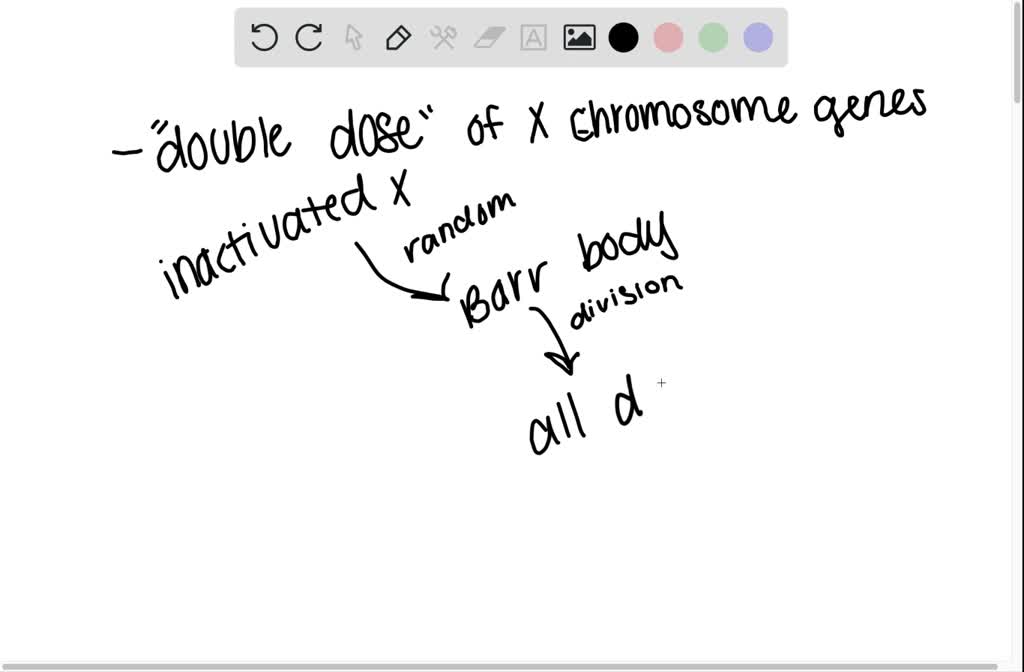 - "double dose" of X chromosome genes
inactivated X
random
Barr body
division
all d